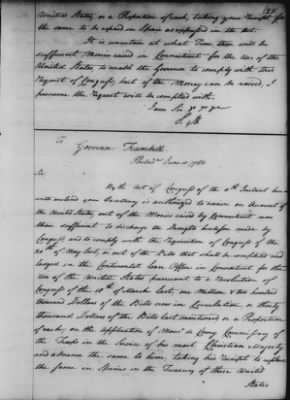 United States, or a Proportion of each, taking your Receipt for
the same to be repaid in Spain as expressed in the Act.
It is uncertain at what Time there will be
sufficient Monies raised in Connecticut for the Use of the
United States to enable the Governor to comply with this
Request of Congress but if the Money can be raised, I
presume the Request will be complied with.
I am Sir
S. H.
To
Governor Trumbull
Philada June 11, 1780
Sir,
By the Act of Congress of the 9th Instant here
with enclosed your Excellency is authorized to receive on Account of
the United States, out of the Monies raised by Connecticut more
than sufficient to discharge the Draughts heretofore made by
Congress and to comply with the Requisition of Congress of the
20th of May last, or out of the Bills that shall be completed and
lodged in the Continental Loan Office in Connecticut for the
Use of the United States pursuant to a Resolution of
Congress of the 18th of March last, one Million & two hundred
thousand Dollars of the Bills now in Circulation, or thirty
thousand Dollars of the Bills last mentioned or a Proportion
of each; on the Application of Monsr de Corny Commissary of
the Troops in the Service of his most Christian Majesty
and advance the same to him, taking his Receipt to replace
the same in Specie in the Treasury of these United
States